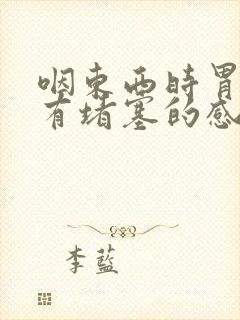 咽东西时胃
有堵塞的感
李蓝